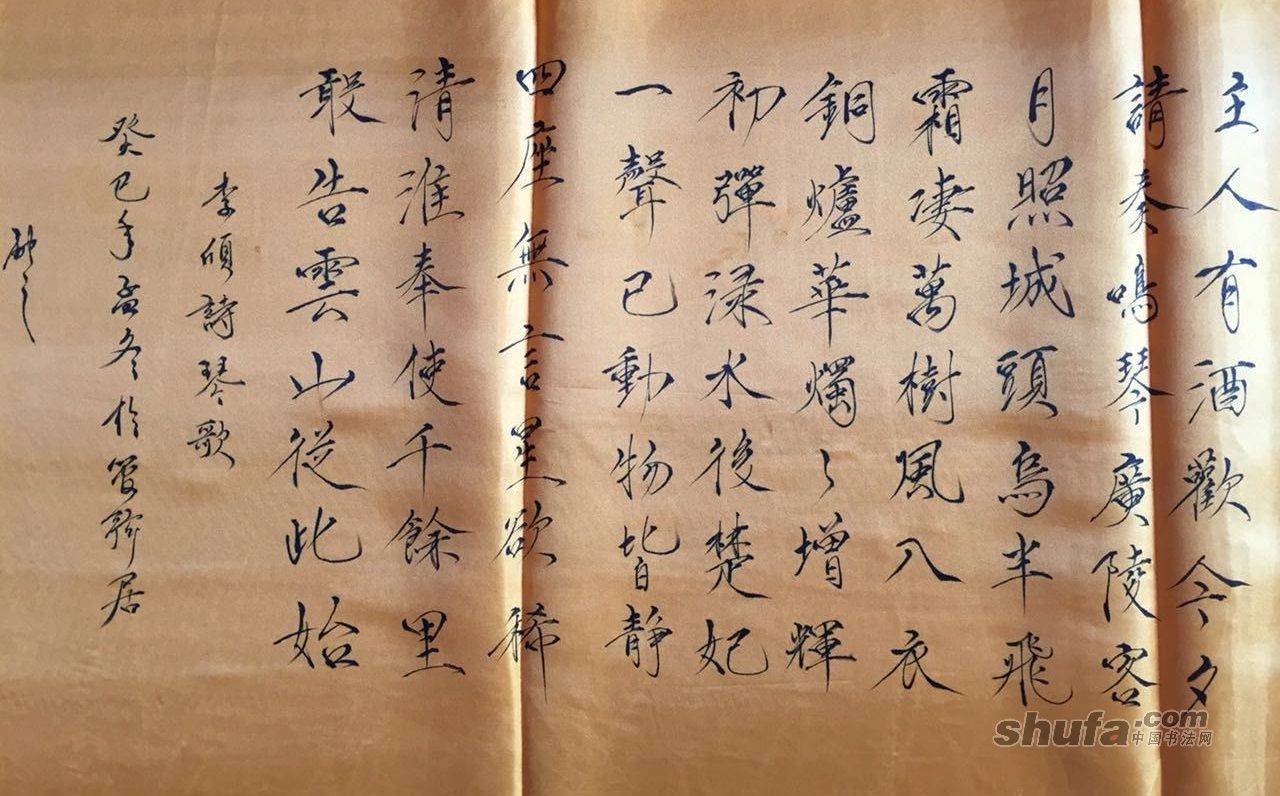 主人有酒歡今夕
請奏鳴琴廣陵客
月照城頭烏半飛
霜凄萬樹風入衣
銅爐華燭〻增輝
初彈渌水後楚妃
一聲已動物皆静
四座無言星欲稀
清淮奉使千餘里
敢告雲山從此始
李頎詩琴歌
癸巳年孟冬於
居
shufa.com
中国书法网